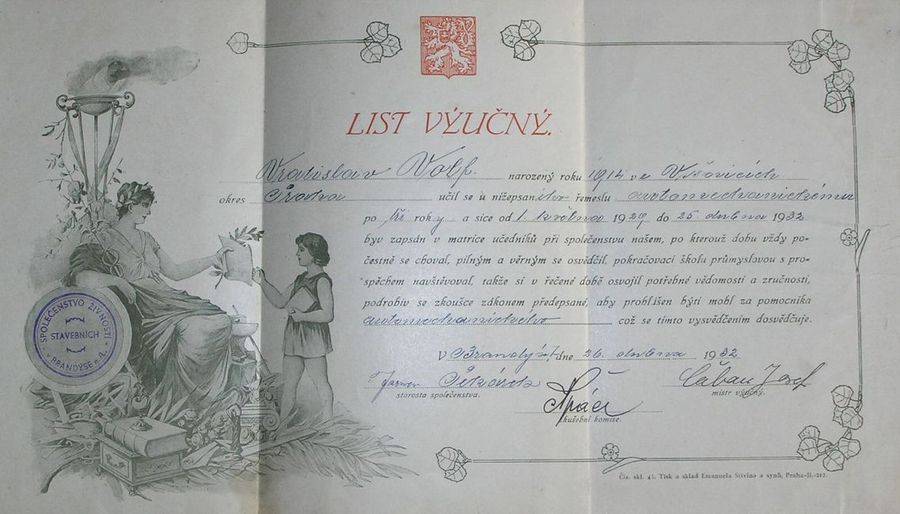 LIST VÝUČNÝ.
Vratislav Volf narozený roku 1914 ve Vršovicích
okres Praha učil se u nížepsaného řemeslu automechanickému
po tři roky a sice od 1 května 1929 do 25 dubna 1932
byv zapsán v matrice učedníků při společenstvu našem, po kterouž dobu vždy po-
čestně se choval, pilným a věrným se osvědčil, pokračovací školu průmyslovou s pro-
spěchem navštěvoval, takže si v řečené době osvojil potřebné vědomosti a zručnosti,
podrobiv se zkoušce zákonem předepsané, aby prohlášen býti mohl za pomocníka
automechanického což se tímto vysvědčením dosvědčuje.
SPOLEČENSTVO ŽIVNOSTÍ
STAVEBNÍCH
BRANDÝSE n. L.
V Brandýse dne 26. dubna 1932
starosta společenstva.
mistr výučný.
zkušební komise.
Čís. skl. 41. Tisk a sklad Emanuela Stivína a synů, Praha-II.-212.